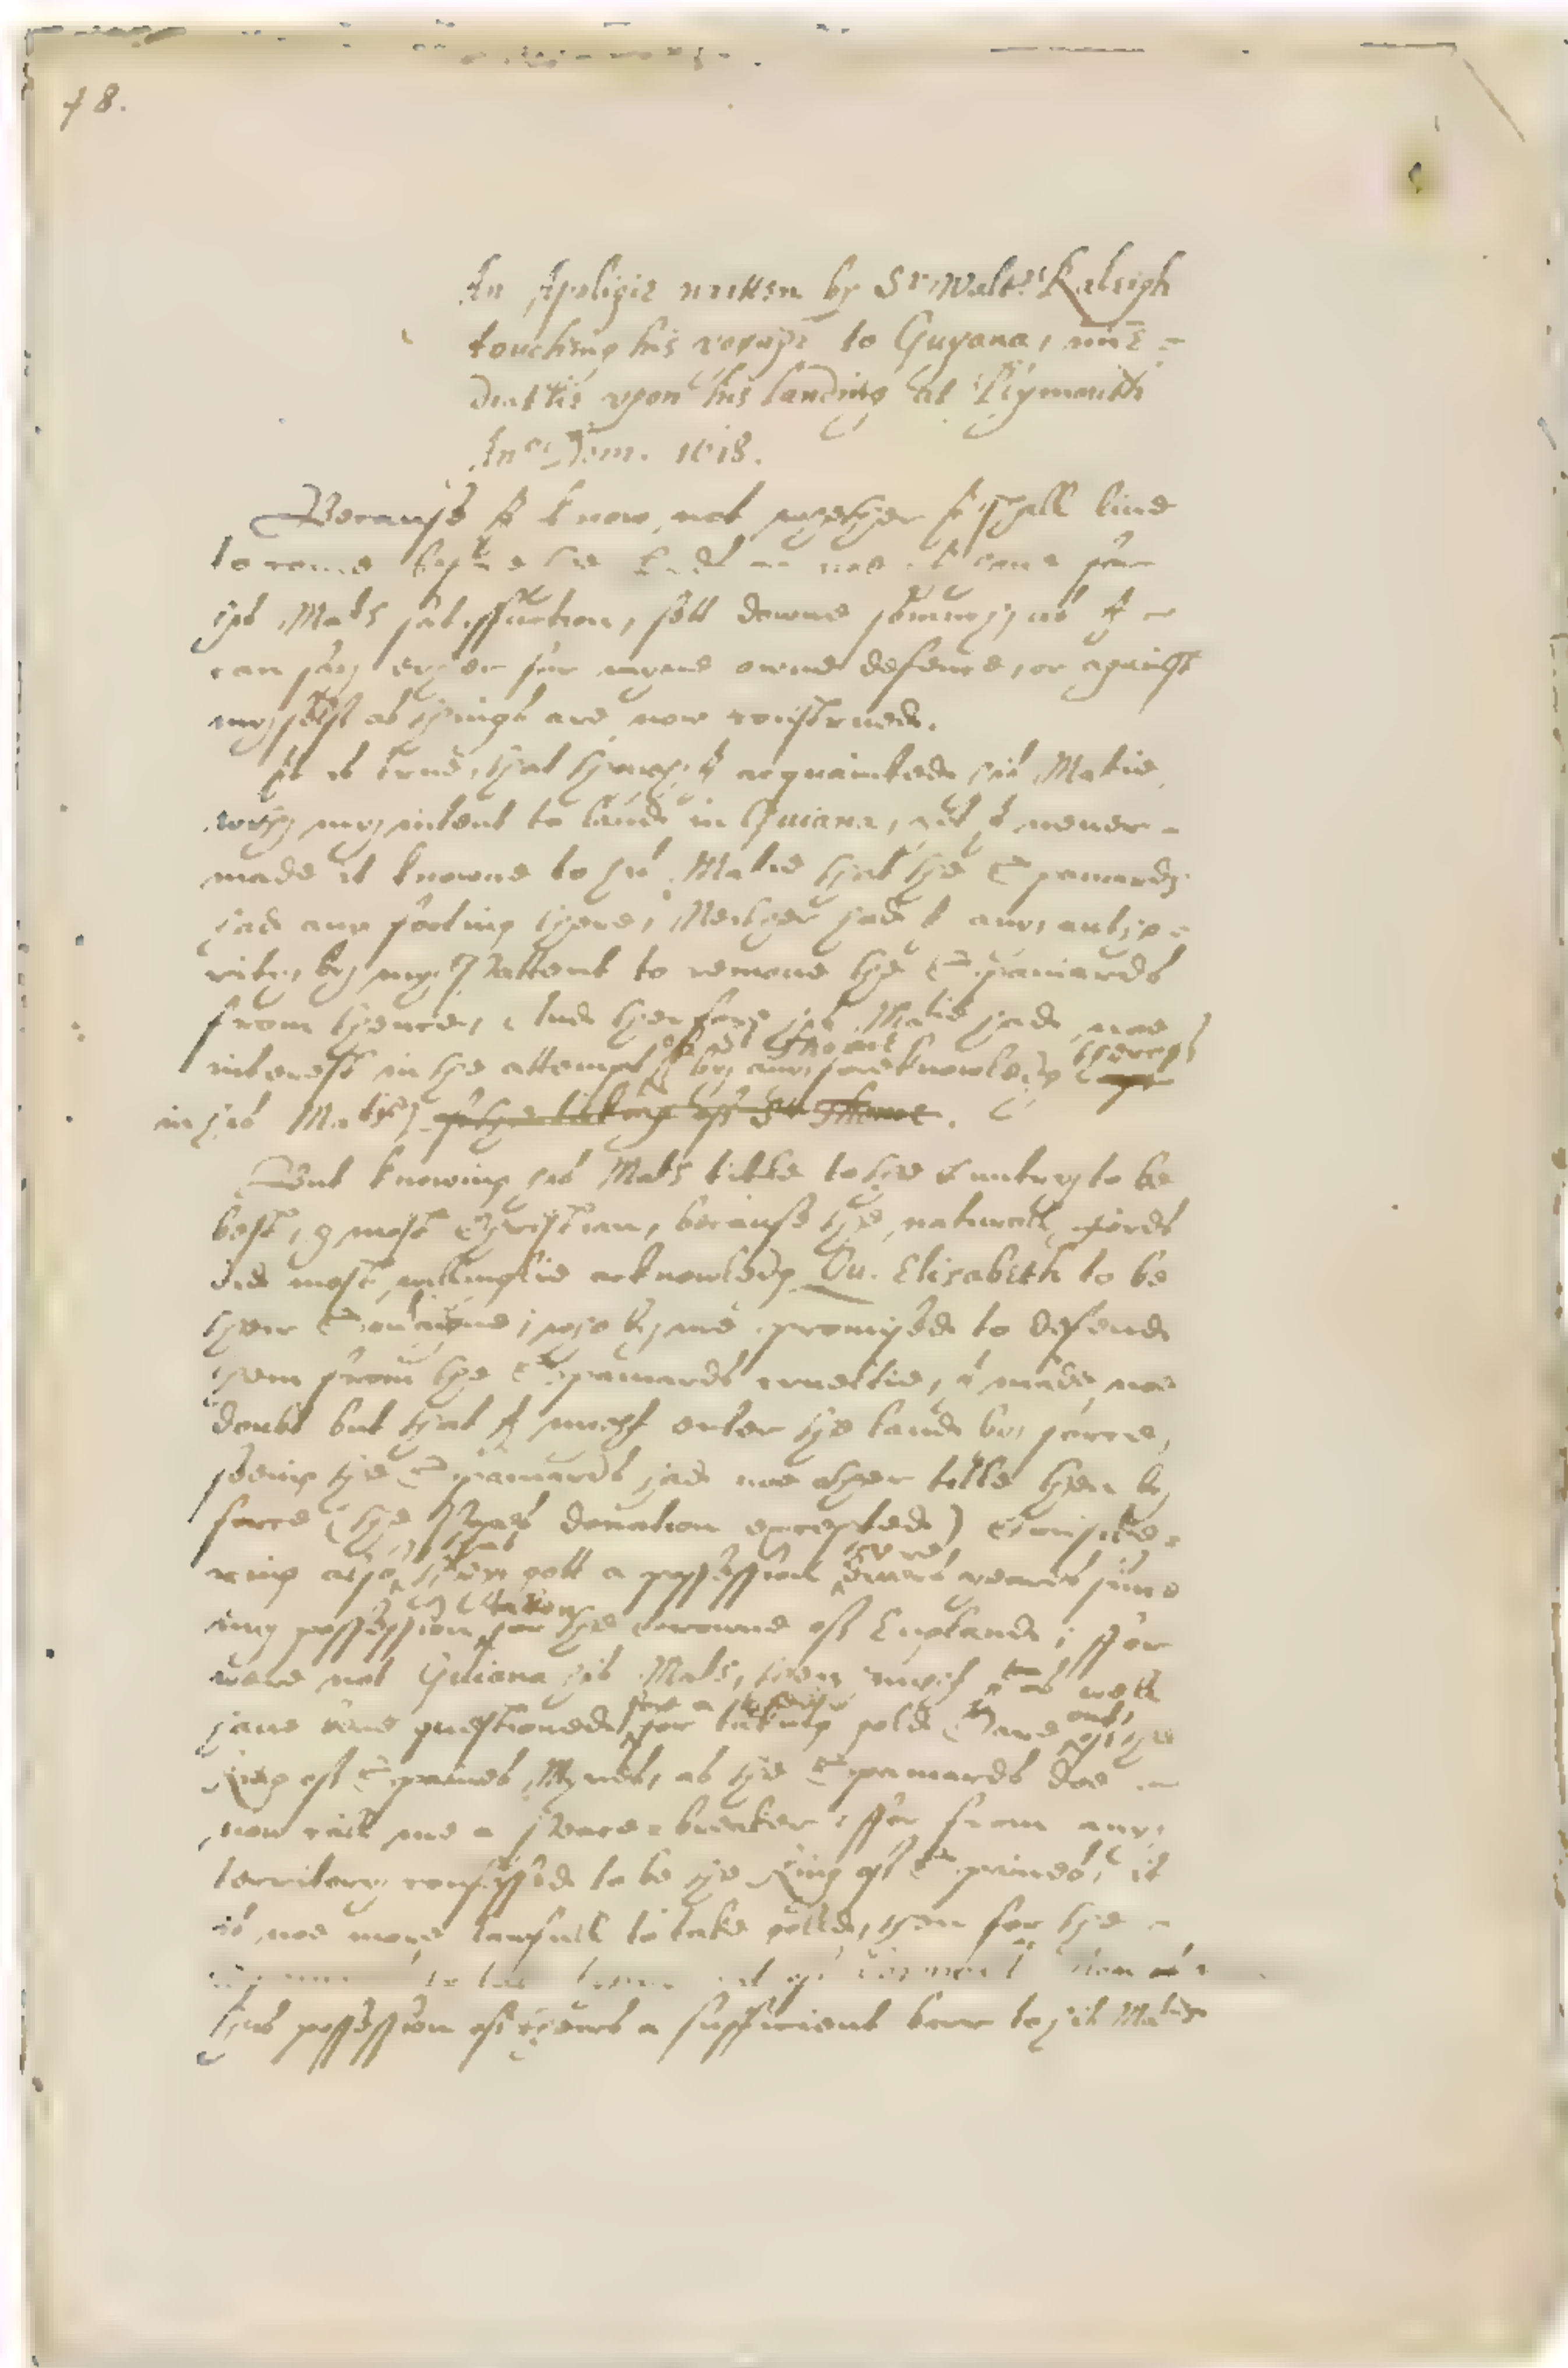 78.
An Apoligie written by Sr Walter Raleigh
touching his voyage to Guyana, imme=
diatlie upon his landing at Plymouth
Ano Dom. 1618.
Because I know not whether I shall live
to come before the
his Mats satisffaction, sett downe somuch as I
can say eyther for myne owne defence, or against
myself as things are now construed.
It is true, that though I acquainted his Matie
with my intent to land in Guiana, yet I never
made it knowne to his Matie that the Spaniards
had any footing there, Neither had I any autho=
ritie, by my Pattent to remoue the Spaniards
from thence, And therfore his Matie had noe
interest in the attempt of St Thome by any foreknowledg therof
in his Matie of the taking off St Thome.
But knowing his Mats title to the Cuntry to be
best, & most Christian, because the naturall Lords
did most willinglie acknowledg Qu. Elisabeth to be
their Soueraigne, who by me promised to defend
them from the Spaniards crueltie, I made noe
doubt but that I might enter the land by force,
seeing the Spaniards had noe other title then by
force (the Popes donation excepted) Conside=
ring also that they gott a possession there divers yeares since
my possession taken for the Crowne off England; ffor
were not Guiana his Mats, then might I as well
have bene questioned for a theefe for taking gold out off the
King off Spaines Mynes, as the Spaniards doe
now call me a Peace=breaker, ffor from any
territory confessed to be the King off Spaines, it
is noe more lawfull to take golde, then for the
this possession off theirs a sufficient barr to his Matie